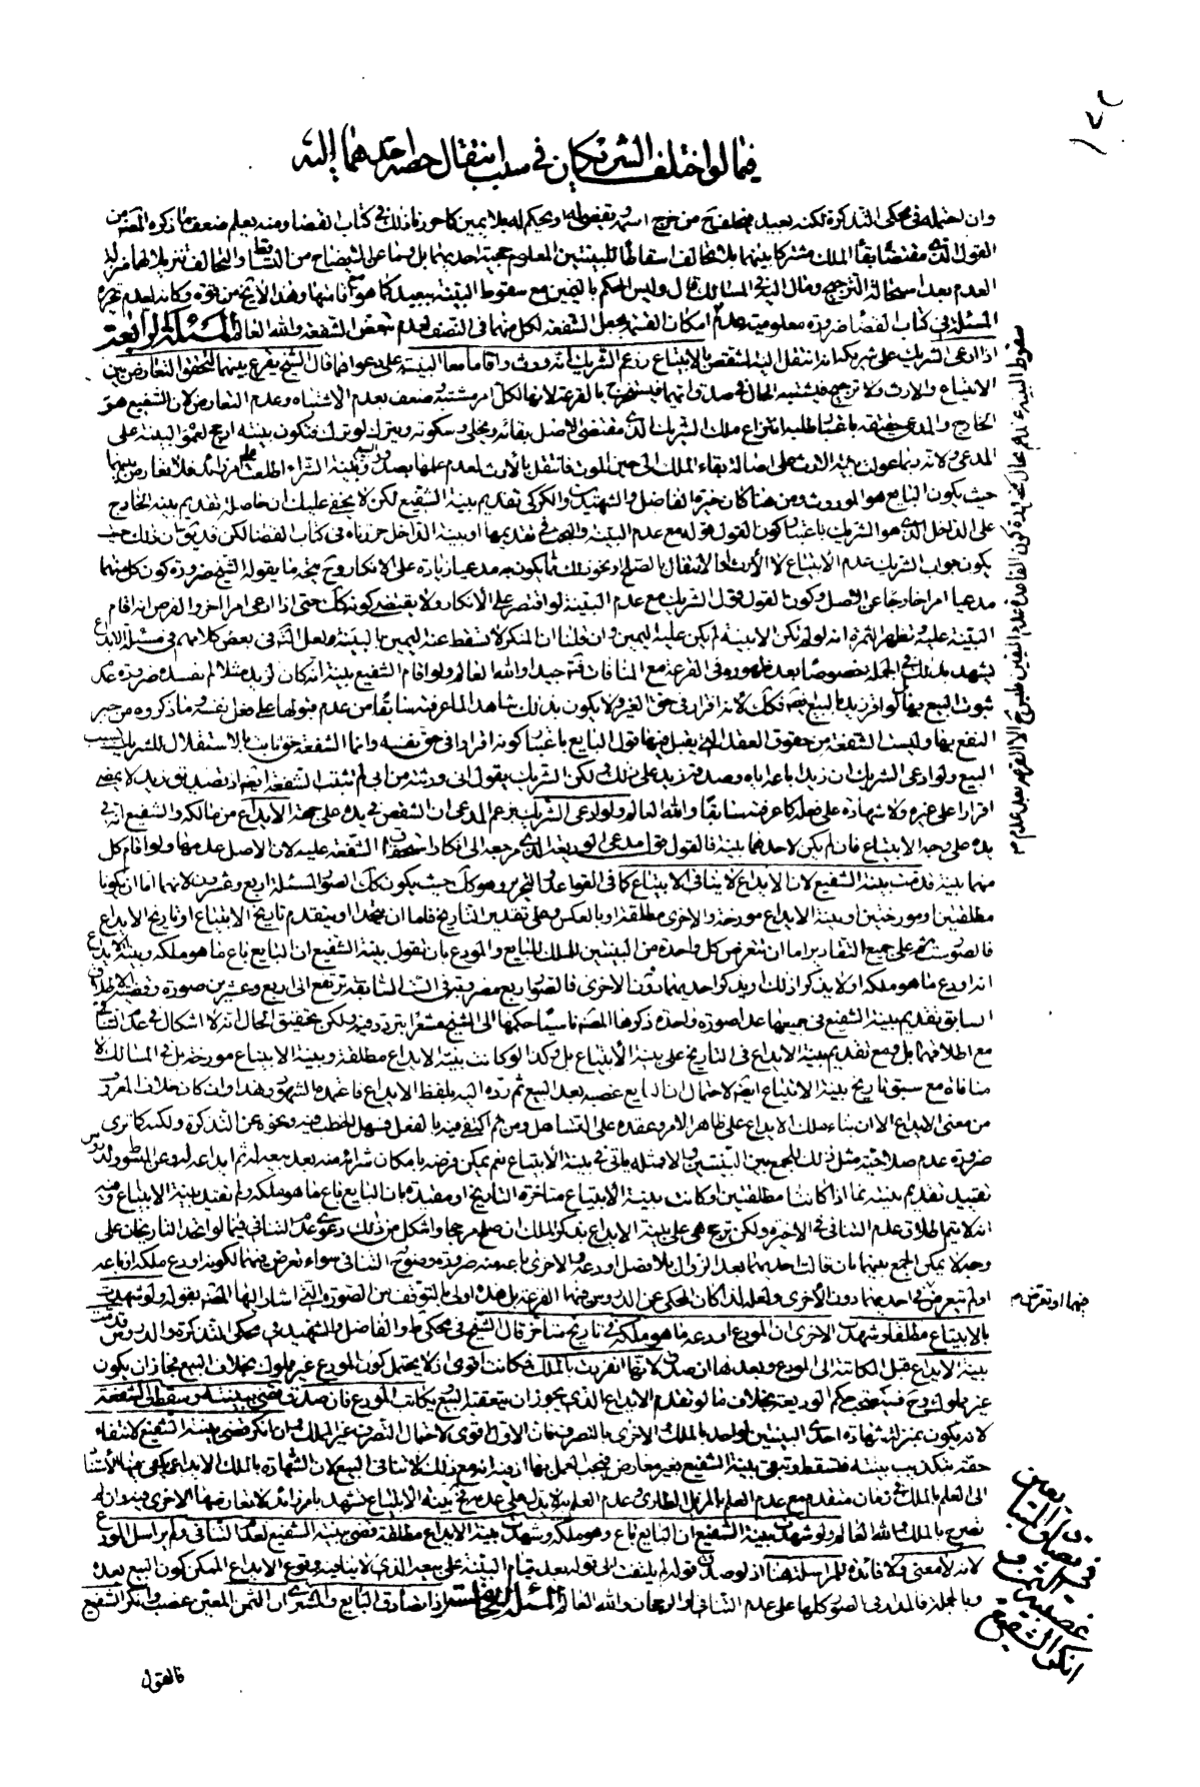 فيما لو اختلف الشريكان في سبب انتقال حصة احدهما إليه
وان احتمله في محكى التذكرة لكنه بعيد فيحلف ح من خرج اسمه او يحكم له بلا يمين كما حررنا ذلك في كتاب القضا ومنه يعلم ضعف ما ذكره المصنف من
القول الذى مقتضاه بقاء الملك مشتركا بينهما بلا تحالف اسقاطا للبينتين المعلوم حجية احديهما
العدم بعد استحالة الترجيح ومال اليه في المسالك قال وليس الحكم باليمين مع سقوط البينة ببعيد كما هو
المسئلة في كتاب القضا ضرورة معلومية عدم امكان القسمة بجعل الشفعة لكل منهما في النصف لعدم تبعض الشفعة والله العالم المسئلة الرابعة
اذا ادعى الشريك على شريكه انه انتقل اليه الشقص بالابتياع وزعم الشريك انه ورث واقاما معا البينة على دعواهما قال الشيخ يقرع بينهما لتحقق التعارض بين
الابتياع والارث ولا ترجيح فيشتبه الحال في صدق ايتهما فيستخرج بالقرعة لانها لكل امر مشتبه وضعف بعدم الاشتباه وعدم التعارض لان الشفيع هو
الخارج والمدعى حقيقة باعتبار طلبه انتزاع ملك الشريك الذى مقتضى الاصل بقائه ويخلى وسكوته ويترك لو ترك فتكون بينته ارجح لعموم البينة على
المدعى ولانه ربما عولت بينة الارث على اصالة بقاء الملك الى حين الموت فانتقل بالارث لعدم علمها بصدور البيع وبينة الشراء اطلعت على امر زائد فلا تعارض بينهما
حيث يكون البايع هو الموروث ومن هنا كان خيرة الفاضل والشهيدين والكركى تقديم بينة الشفيع لكن لا يخفى عليك ان حاصله تقديم بينة الخارج
على الداخل الذى هو الشريك باعتبار كون القول قوله مع عدم البينة والبحث في تقديمها او بينة الداخل حررناه في كتاب القضا لكن قد يق ان ذلك حيث
يكون جواب الشريك عدم الابتياع لا الارث او الانتقال بالصلح او نحو ذلك مما يكون به مدعيا زيادة على الانكار وح يتجه ما يقوله الشيخ ضرورة كون كل منهما
مدعيا امرا خارجا عن الاصل وكون القول قول الشريك مع عدم البينة لو اقتصر على الانكار ولا يقتضى كونه كك حتى اذا ادعى امرا اخر والفرض انه اقام
البينة عليه وتظهر الثمرة انه لو لم تكن الا بينته لم يكن عليه اليمين وان قلنا ان المنكر لا تسقط عنه اليمين بالبينة ولعل
يشهد بذلك في الجملة خصوصا بعد ظهوره في القرعة مع المنافات فت جيدا والله العالم ولو اقام الشفيع بينة انه كان لزيد مثلا لم تفده ضرورة عدم
ثبوت البيع بها كما لو اقر زيد بالبيع ايضا فكك لانه اقرار في حق الغير ولا يكون بذلك شاهدا لما عرفته سابقا من عدم قبولها على فعل نفسه وما ذكروه من جبر
النفع بها وليست الشفعة من حقوق العقد التى يقبل فيها قول البايع باعتبار كونه اقرارا في حق نفسه وانما الشفعة حق ثابت بالاستقلال للشريك بسبب
البيع ولو ادعى الشريك ان زيدا باع اباه وصدقه زيد على ذلك لكن الشريك يقول انى ورثته من ابى لم تثبت الشفعة ايضا اذ تصديق زيد لا يمضى
اقرارا على غيره ولا شهادة على فعله كما عرفته سابقا والله العالم ولو ادعى الشريك بزعم المدعى ان الشقص في يده على جهة الايداع من مالكه والشفيع انه في
يده على وجه الابتياع فان لم يكن لاحدهما بينة فالقول قول مدعى الوديعة الذى مرجعه الى انكار استحقاق الشفعة عليه لان الاصل عدمها ولو اقام كل
منهما بينة قدمت بينة الشفيع لان الايداع لا ينافى الابتياع كما في القواعد والتحرير وهو كك حيث يكون كك الصور المسئلة اربع وعشرين لانهما اما ان يكونا
مطلقتين او مورختين او بينة الايداع مورخة والاخرى مطلقة او بالعكس وعلى تقدير التاريخ فاما ان يتحدا او يتقدم تاريخ الابتياع او تاريخ الايداع
فالصور ست ثم على جميع التقادير اما ان تتعرض كل واحدة من البينتين للملك للبايع والمودع بان تقول بينة الشفيع ان البايع باع ما هو ملكه وبينة الايداع
انه اودع ما هو ملكه او لا يذكرا ذلك او يذكره احديهما دون الاخرى فالصور اربع مضروبة في الست السابقة ترتفع الى اربع وعشرين صورة وقضية اطلاق
السابق تقديم بينة الشفيع في جميعها عدا صورة واحدة ذكرها المصنف ناسبا حكمها الى الشيخ مشعرا بتردده فيه ولكن تحقيق الحال انه لا اشكال في عدم التنافي
مع اطلاقهما بل ومع تقديم بينة الايداع في التاريخ على بينة الابتياع بل وكذا لو كانت بينة الايداع مطلقة وبينة الابتياع مورخة بل في المسالك لا
منافاة مع سبق تاريخ بينة الابتياع ايضا لاحتمال ان البايع غصبه بعد البيع ثم رده اليه بلفظ الايداع فاعتمده الشهود وهذا وان كان خلاف المعروف
من معنى الايداع الا ان بناء ملك الايداع على ظاهر الامر وعقده على التساهل ومن ثم اكتفى فيه بالفعل فسهل الخطب فيه ونحوه عن التذكرة ولكنه كما ترى
ضرورة عدم صلاحية مثل ذلك للجمع بين البينتين والا مثله ياتى في بينة الابتياع نعم يمكن فرضه بامكان شرائه منه بعد بيعه له ثم ايداعه له وعن
تقييد تقديم بينته بما اذا كانتا مطلقتين او كانت بينة الابتياع متاخرة التاريخ او مقيدة بان البايع باع ما هو ملكه ولم تقيد بينة الايداع وفيه
انه لا يتم اطلاق عدم التنافى في الاخير ولكن ترجح هى على بينة الايداع بذكر الملك ان صلح مرجحا واشكل من ذلك دعوى عدم التنافى فيما لو اتحد التاريخان على
وجه لا يمكن الجمع بينهما بان قالت احديهما بعد الزوال بلا فصل اودعه والاخرى باعه منه ضرورة وضوح التنافى سواء تعرض فيهما لكونه اودع ملكه او باعه
او لم يتعرض في احدهما دون الاخرى ولعله لذا كان المحكى عن الدروس فيهما القرعة بل هذه اولى بالتوقف من الصورة التى اشار اليها المصنف بقوله ولو شهدت
بالابتياع مطلقا وشهدت الاخرى ان المودع اودعه ما هو ملكه في تاريخ متاخر قال الشيخ في محكى ط والفاضل والشهيد في محكى التذكرة والدروس قدمت
بينة الايداع قبل المكاتبة الى المودع وبعدها ان صدق لانها انفردت بالملك فكانت اقوى اذ لا يحتمل كون المودع غير مملوك بخلاف البيع فجاز ان يكون
غير مملوك وح فيتضح حكم الوديعة بخلاف ما لو تقدم الايداع الذى يجوز ان يتعقبه البيع يكاتب المودع فان صدق قضى ببينته وسقطت الشفعة
لانه يكون بمنزلة شهادة احدى البينتين لواحد بالملك والاخرى بالتصرف فان الاولى اقوى لاحتمال التصرف غير الملك وان انكر قضى ببينة الشفيع لانتفاء
حقه بتكذيب بينته فتسقط وتبقى بينة الشفيع بغير معارض فيجب العمل بها
الى العلم بالملك في زمان متقدم مع عدم العلم بالمزيل الطارى وعدم العلم به لا يدل على عدمه وبينة الابتياع تشهد بامر زائد لا تعارضها الاخرى فيه وان لم
تصرح بالملك والله العالم ولو شهدت بينة الشفيع ان البايع باع وهو ملكه وشهدت بينة الايداع مطلقة قضى ببينة الشفيع لعدم التنافى ولم يراسل المودع
لانه لا معنى ولا فائدة للمراسلة هنا اذ لو صدق قوله لم يلتفت الى قوله بعد قيام البينة على بيعه الذى لا ينافيه وقوع الايداع الممكن كون البيع بعده
وبالجملة فالمدار في الصور كلها على عدم التنافى او الرجحان والله العالم المسئلة الخامسة اذا تصادق البايع والمشترى ان الثمن المعين غصب وانكر الشفيع
فيهما او تعرض
في تصادق المتبايعان
غصبية الثمن مع
انكار الشفيع
فالقول